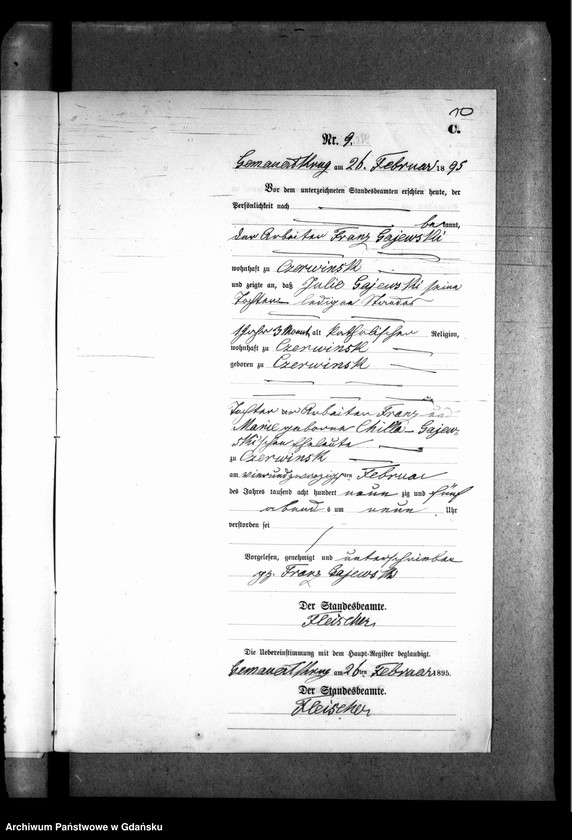 10
C.
Nr. 9.
am 26. Februar 1895
Vor dem unterzeichneten Standesbeamten erschien heute, der
Persönlichkeit nach
bekannt,
der Arbeiter Franz Gajewski
wohnhaft zu Czerwinsk
und zeigte an, daß Julie Gajewski seine
Tochter ledigen Standes
1 Jahr 3 Monat, alt katholischer Religion,
wohnhaft zu Czerwinsk
geboren zu Czerwinsk
Tochter der Arbeiter Franz und
Marie geborne Chilla-Gajew-
skischen Eheleute
zu Czerwinsk
am vierundzwanzigsten Februar
des Jahres tausend acht hundert neunzig und fünf
abend s um neun Uhr
verstorben sei
Vorgelesen, genehmigt und unterschrieben
gz. Franz Gajewski
Der Standesbeamte.
Fleischer
Die Uebereinstimmung mit dem Haupt-Register beglaubigt.
am 26ten Februar 1895.
Der Standesbeamte.
Fleischer
Archiwum Państwowe w Gdańsku